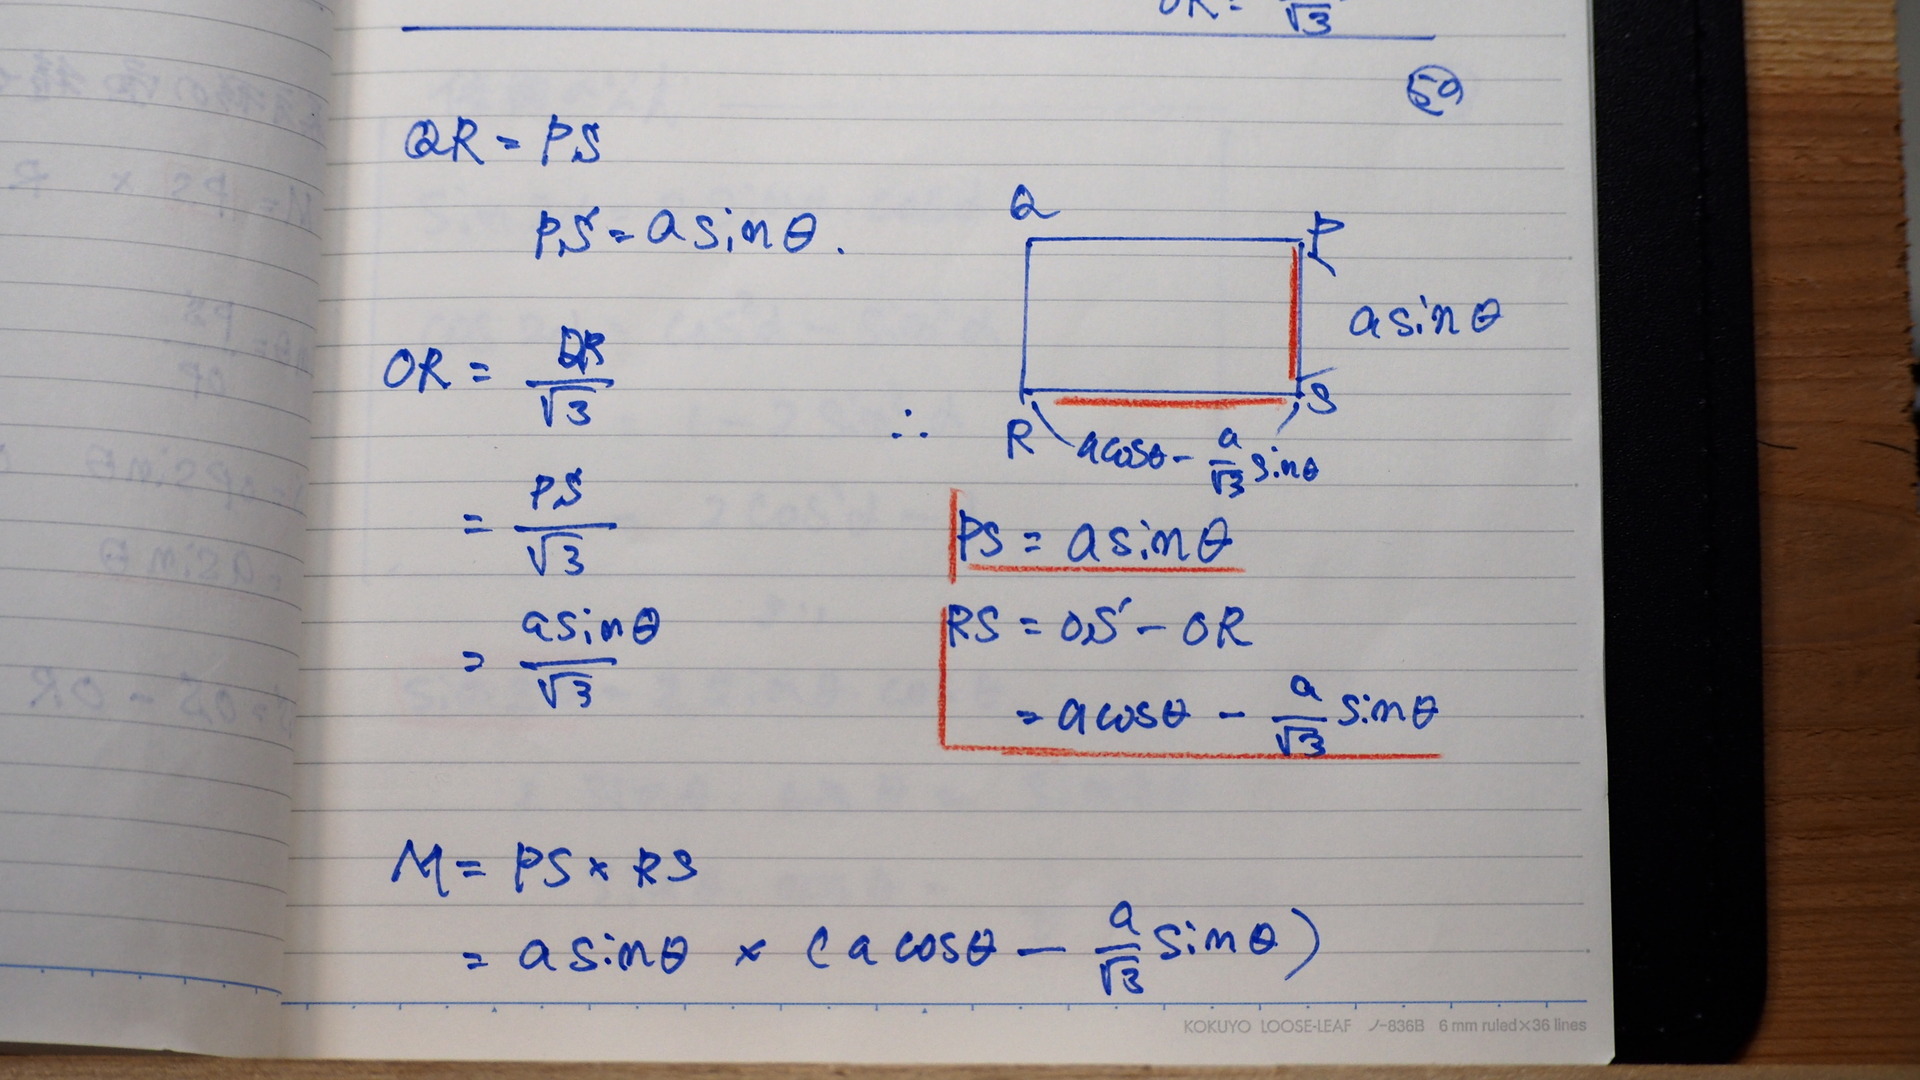 OR = /√3
59
QR = PS
PS = a sin θ.
OR = QR/√3
= PS/√3
= a sin θ/√3
Q
P
a sin θ
S
R
a cos θ - a/√3 sin θ
∴
PS = a sin θ
RS = OS - OR
= a cos θ - a/√3 sin θ
M = PS × RS
= a sin θ × (a cos θ - a/√3 sin θ)
KOKUYO LOOSE-LEAF ノ-836B 6 mm ruled×36 lines